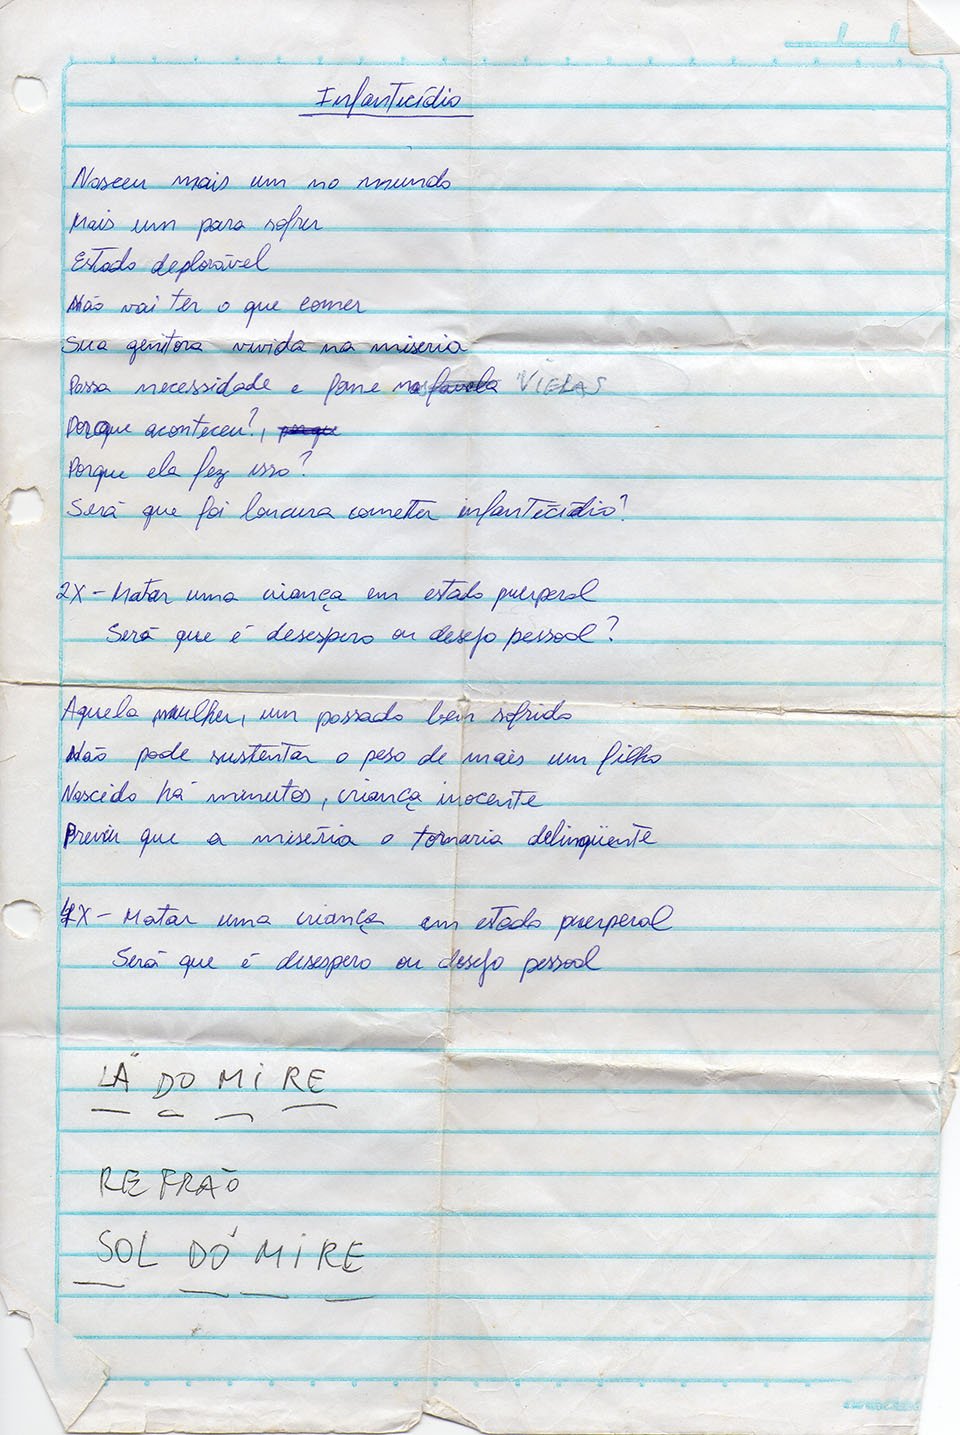 Infanticídio
Nasceu mais um no mundo
Mais um para sofrer
Estado deplorável
Não vai ter o que comer
Sua genitora vivida na miseria
Passa necessidade e fome na favela VIELAS
Porque aconteceu?, porque
Porque ela fez isso?
Será que foi loucura cometer infanticídio?
2X - Matar uma criança em estado puerperal
Será que é desespero ou desejo pessoal?
Aquela mulher, um passado bem sofrido
Não pode sustentar o peso de mais um filho
Nascido há minutos, criança inocente
Previu que a miséria o tornaria delinqüente
4X - Matar uma criança em estado puerperal
Será que é desespero ou desejo pessoal
LÁ DO MI RE
REFRÃO
SOL DÓ MI RE